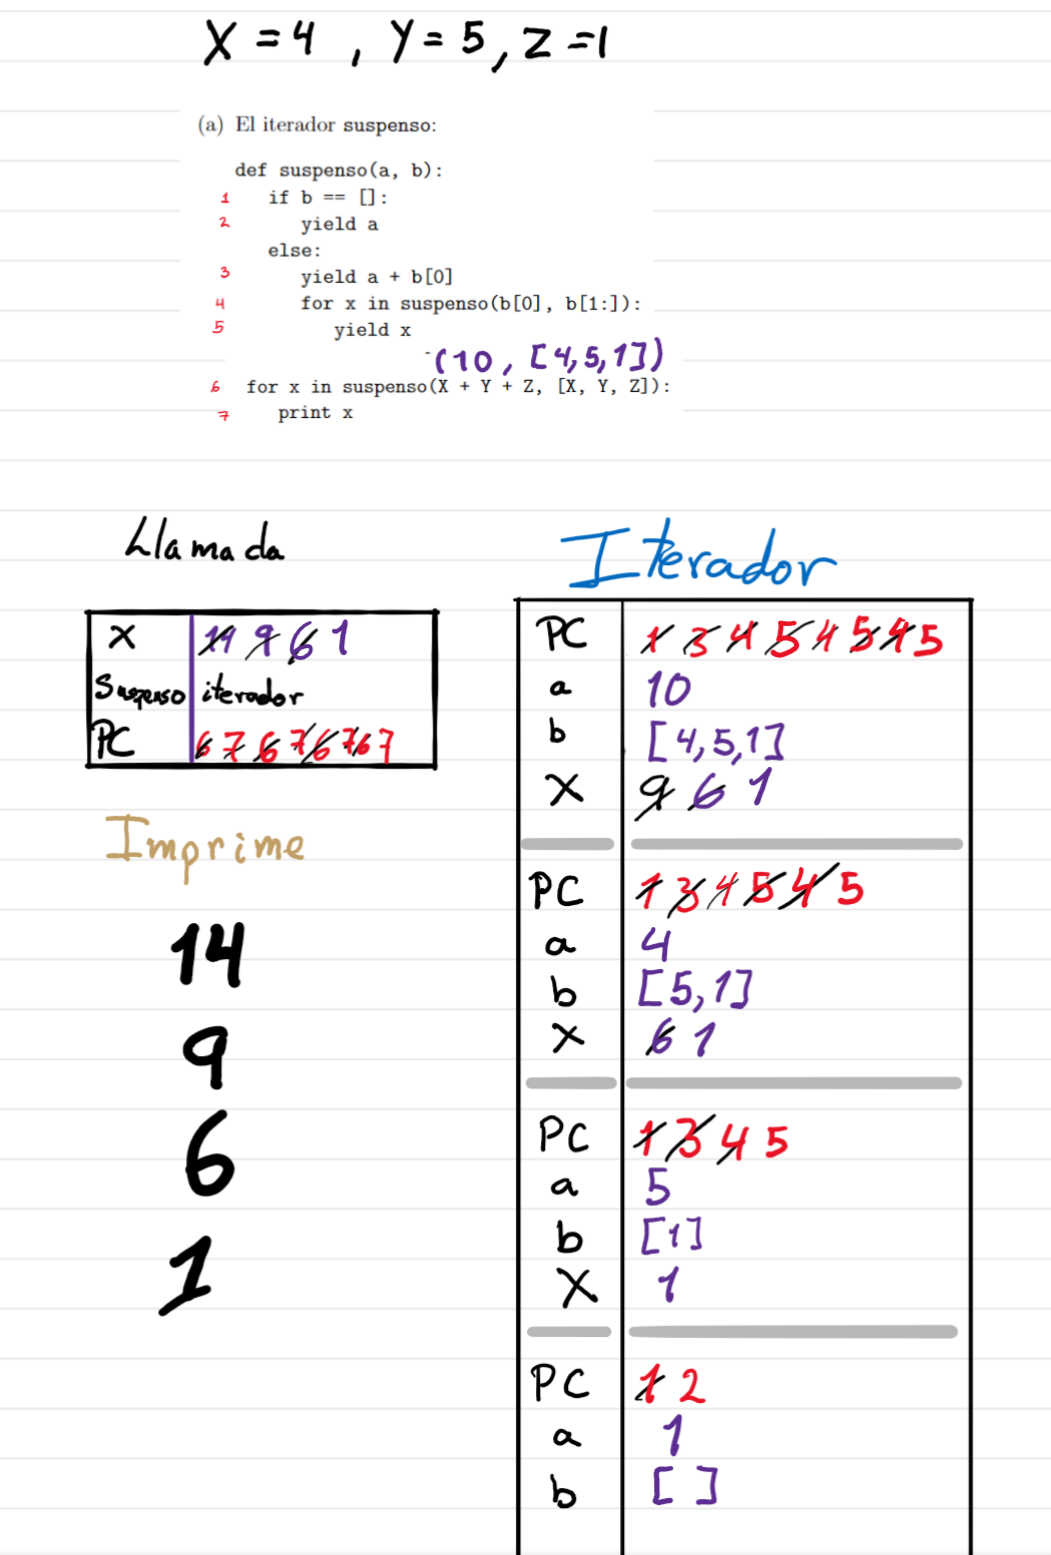 X = 4 , Y = 5 , Z = 1
(a) El iterador suspenso:
def suspenso(a, b):
1 if b == []:
2 yield a
else:
3 yield a + b[0]
4 for x in suspenso(b[0], b[1:]):
5 yield x
(10, [4,5,1])
6 for x in suspenso(X + Y + Z, [X, Y, Z]):
7 print x
Llamada
X 14 9 6 1
Suspenso iterador
PC 6 7 6 7 6 7 6 7
Imprime
14
9
6
1
Iterador
PC 1 3 4 5 4 5 4 5
a 10
b [4,5,1]
X 9 6 1
PC 1 3 4 5 4 5
a 4
b [5,1]
X 6 1
PC 1 3 4 5
a 5
b [1]
X 1
PC 1 2
a 1
b [ ]